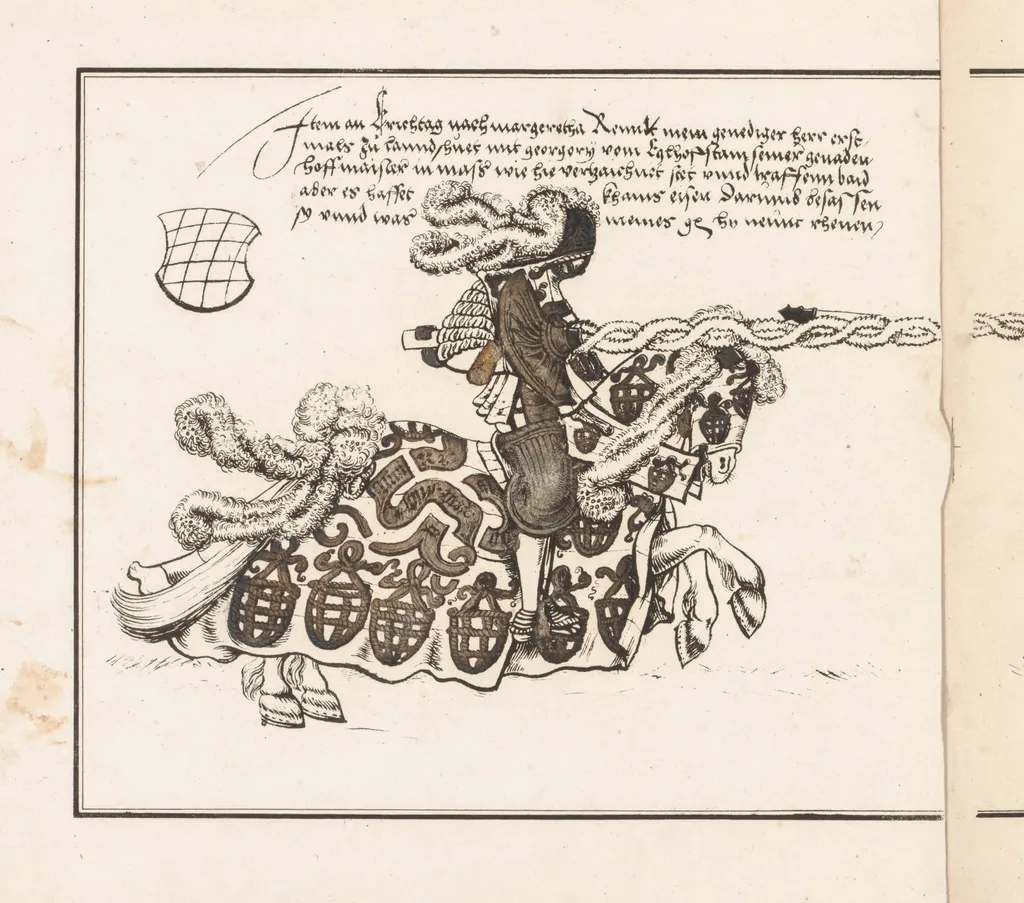 Item an Erichtag nach margeretha Rennt mein genediger herr erst-
mals zu lannd/huet mit georgory vom Eglhofstain seiner genaden
hoffmaister in mass wie hie verzaichnet stet vnnd traffenn baid
aber es hafftet khains eisen Darumb besassen
sy vnnd was meines g hn neunt rhenen